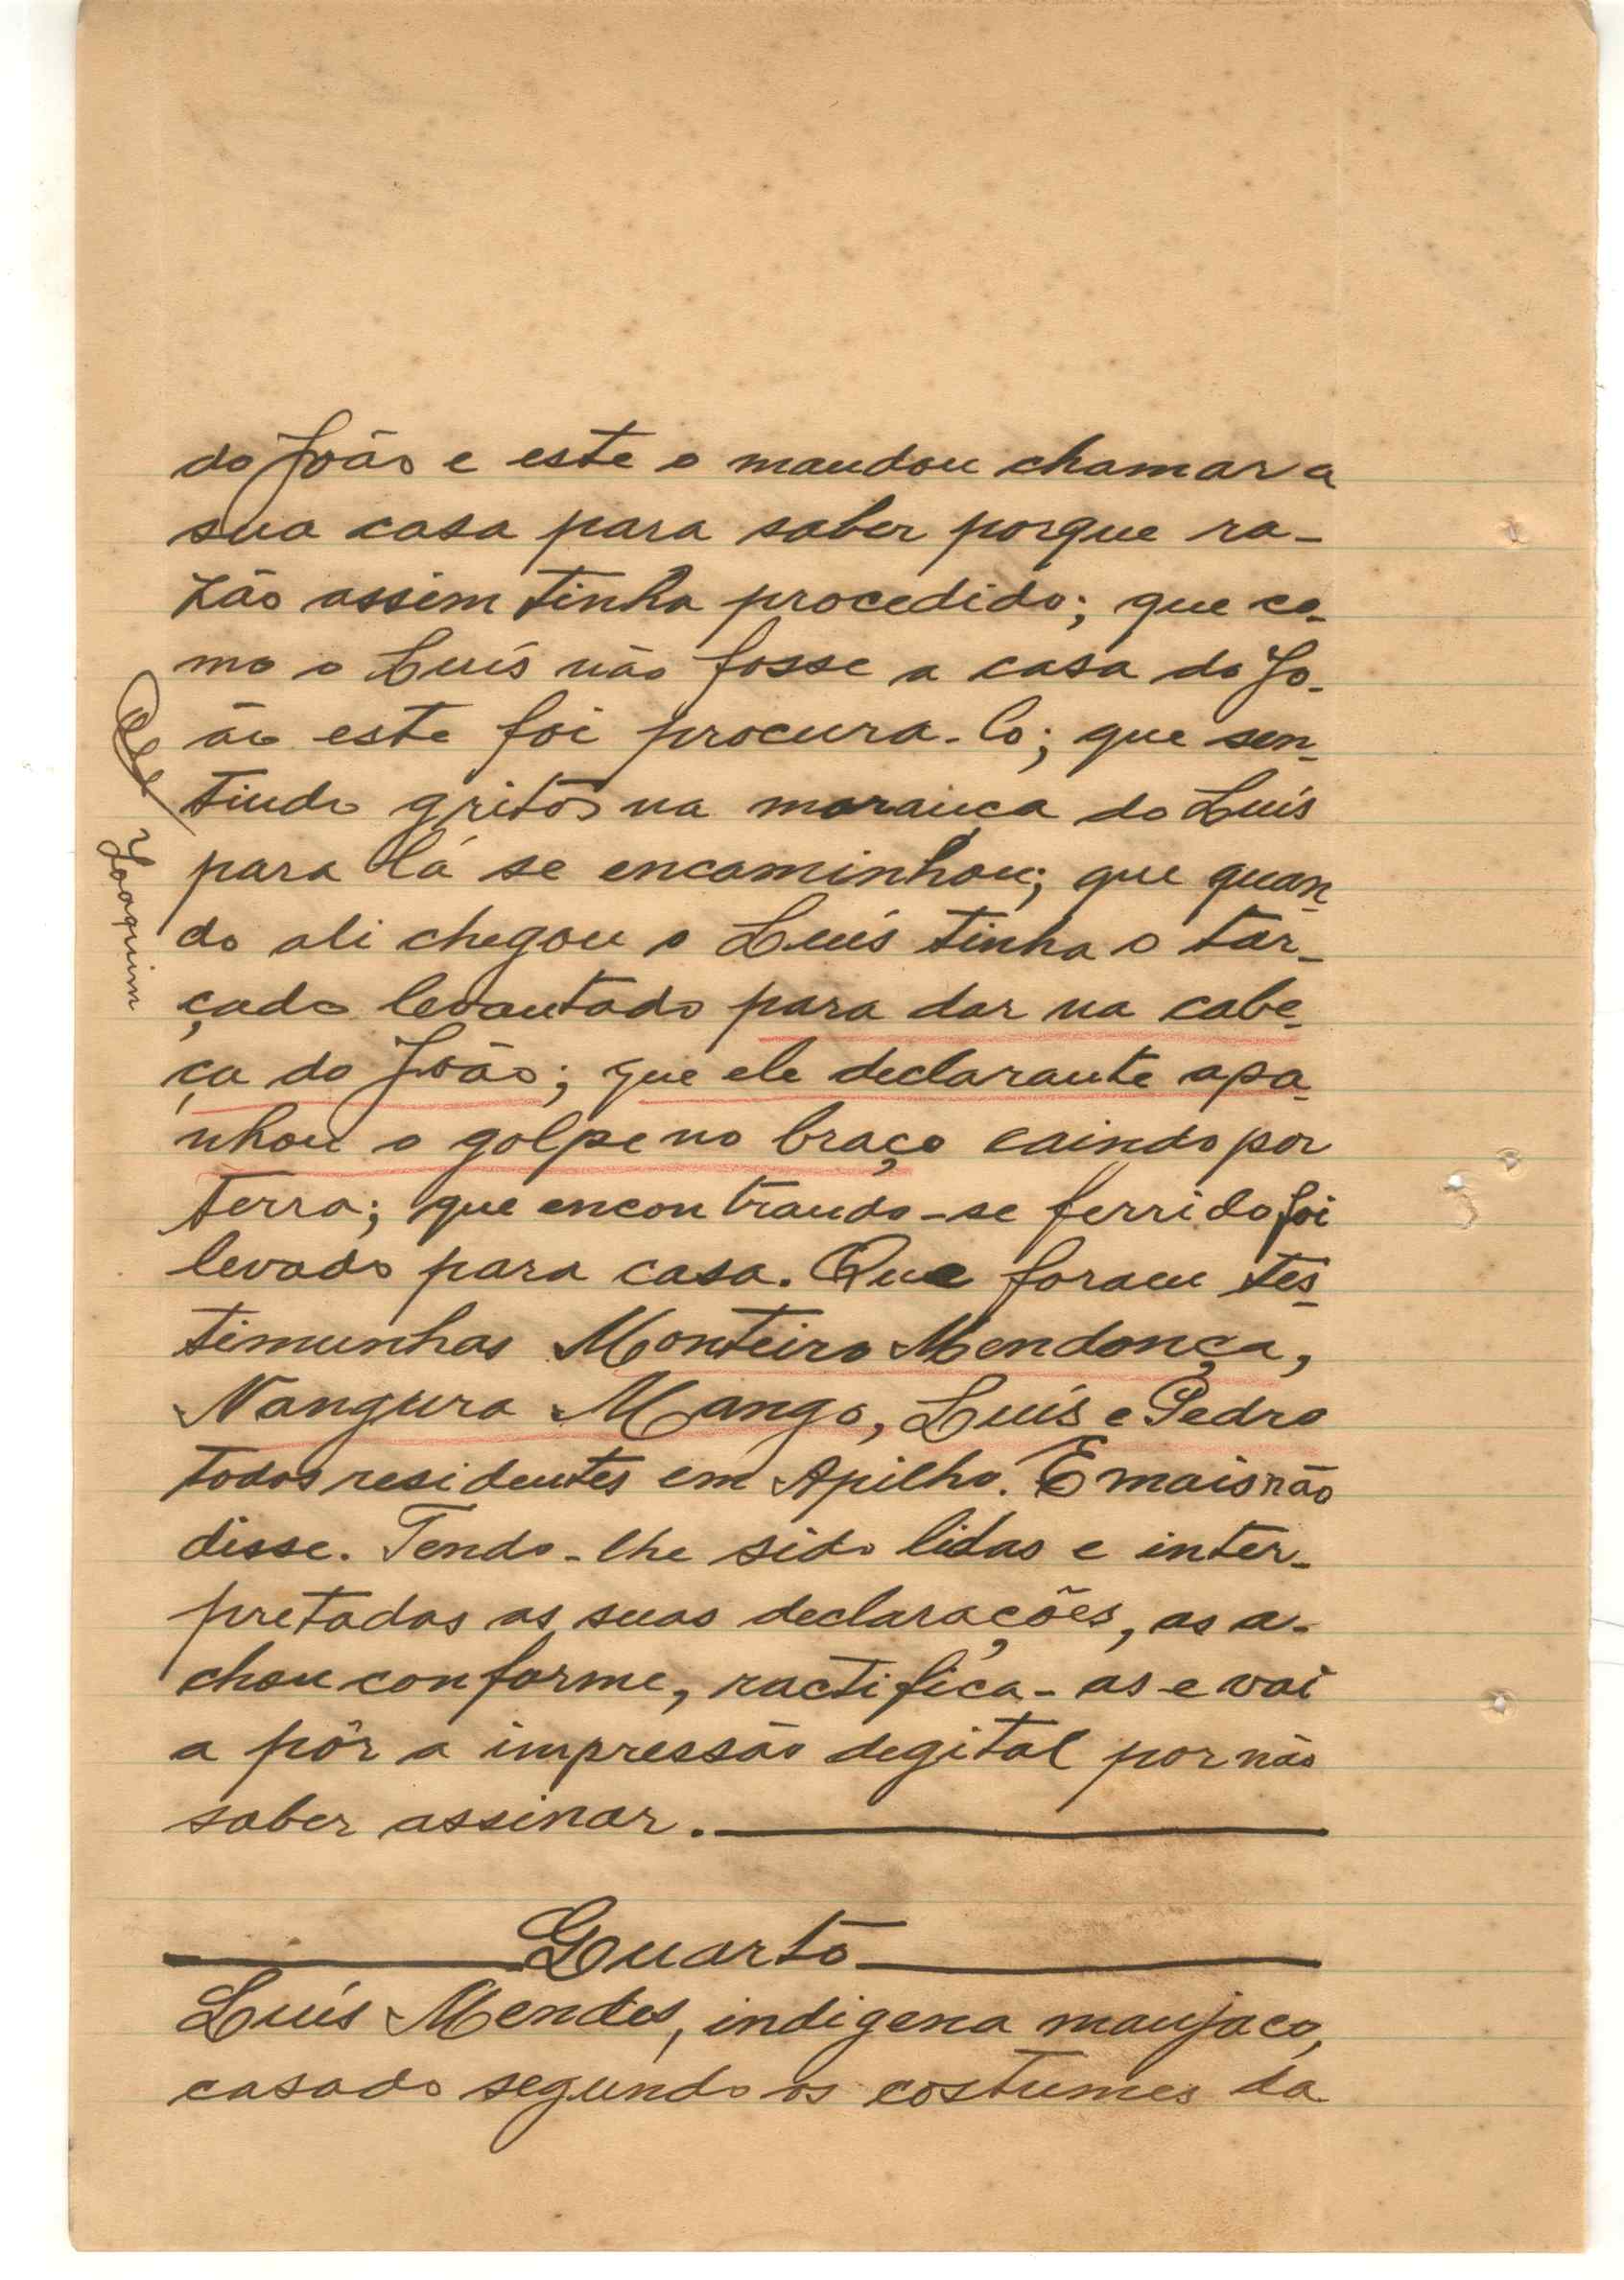 do João e este o mandou chamar a
sua casa para saber porque ra-
zão assim tinha procedido; que co-
mo o Luís não fosse a casa do Jo-
ão este foi procura-lo; que sen-
tindo gritos na moranca do Luís
para lá se encaminhou; que quan-
do ali chegou o Luís tinha o tar-
çado levantado para dar na cabe-
ça do João; que ele declarante apa-
nhou o golpe no braço caindo por
terra; que encontrando-se ferrido foi
levado para casa. Que foram tes-
timunhas Monteiro Mendonça,
Nangura Mango, Luís e Pedro
todos residentes em Apilho. E mais não
disse. Tendo-lhe sido lidas e inter-
pretadas as suas declarações, as a-
chou conforme, ractifica-as e vai
a pôr a impressão degital por não
saber assinar.
Quarto
Luís Mendes, indigena manjaco,
casado segundo os costumes da
Joaquim